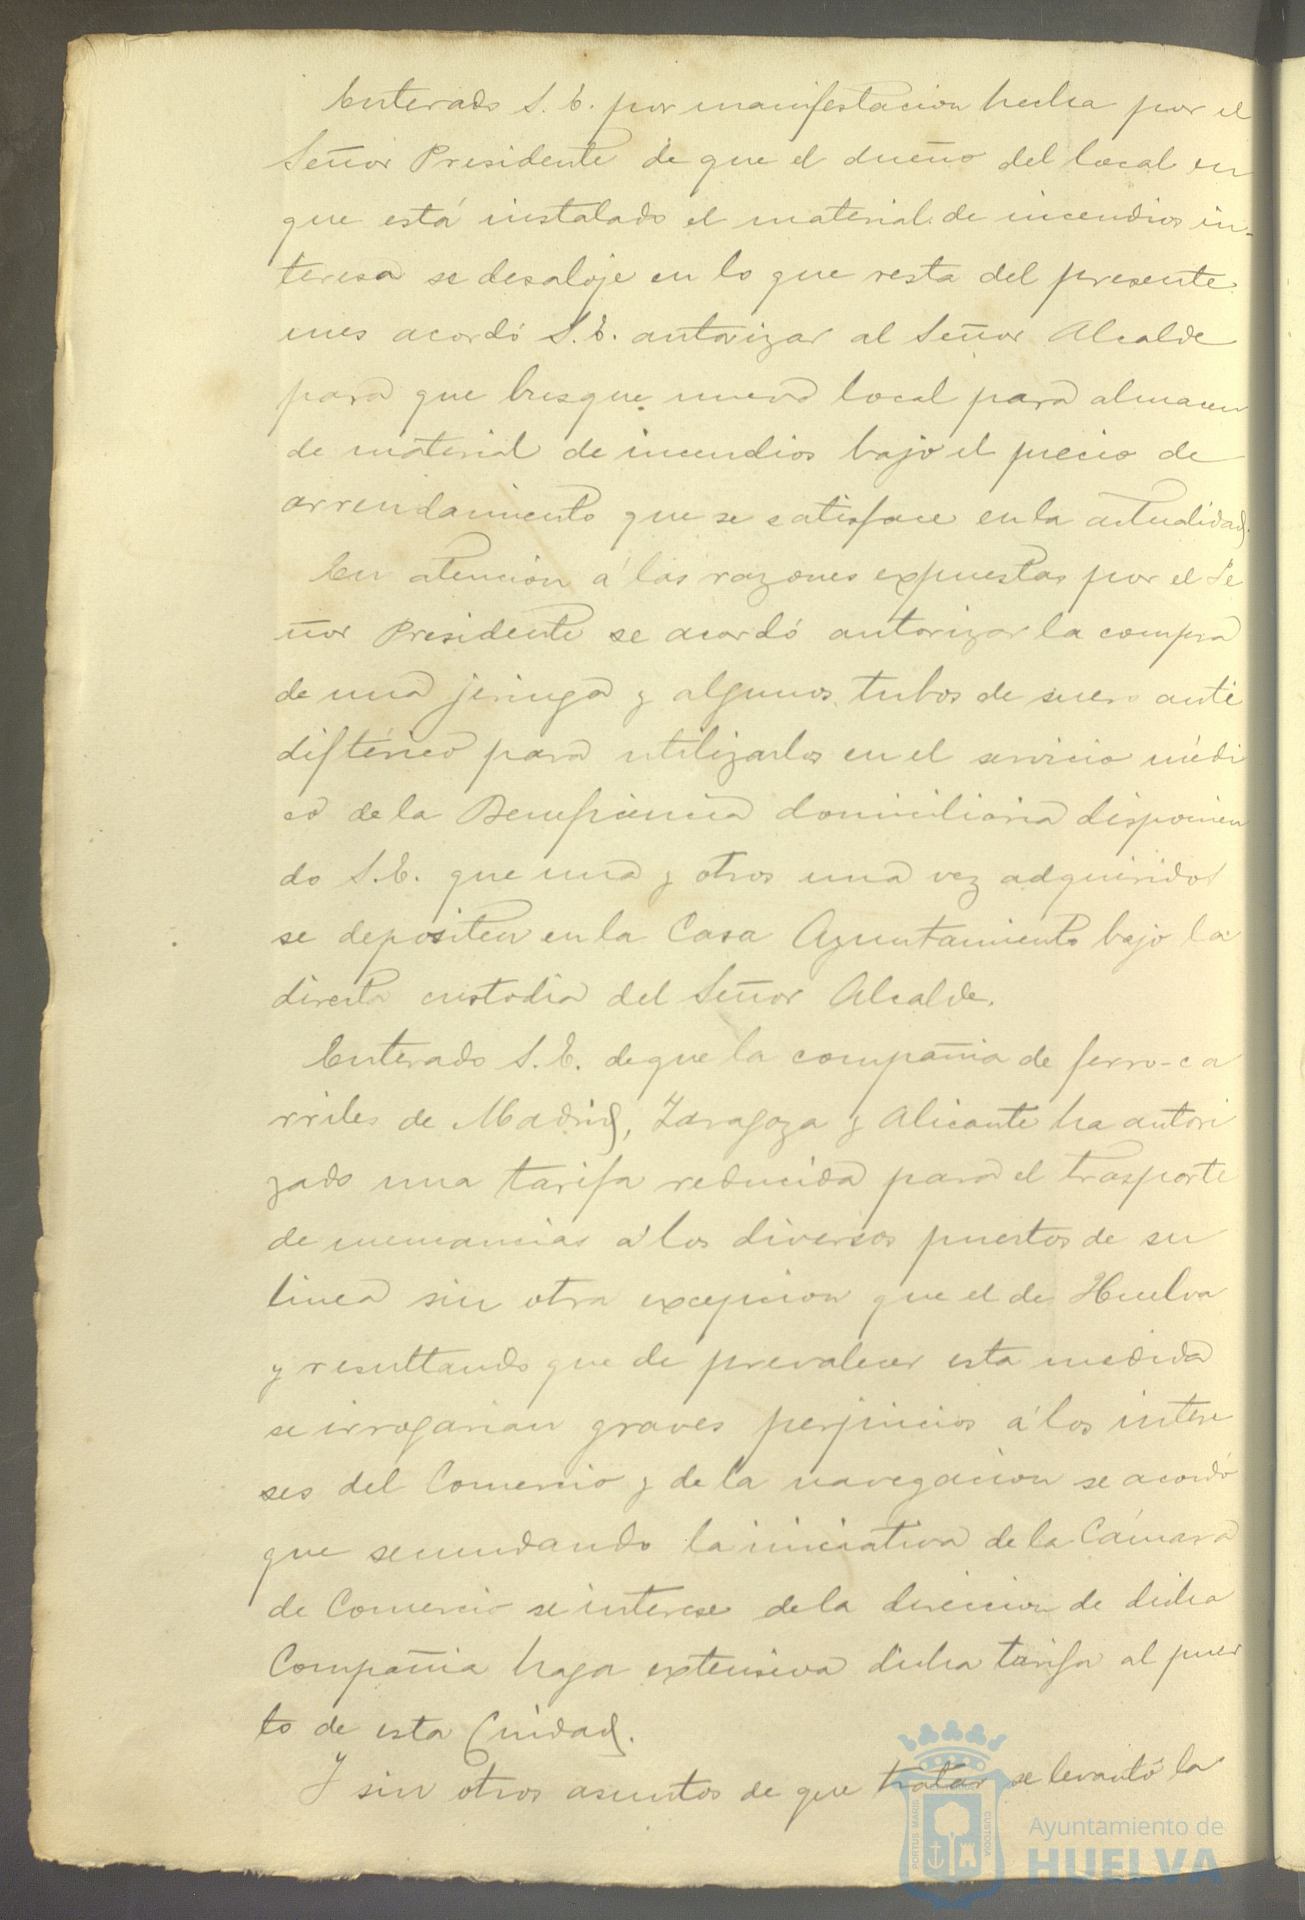 Enterado S. E. por manifestacion hecha por el
Señor Presidente de que el dueño del local en
que está instalado el material de incendios in-
teresa se desaloje en lo que resta del presente
mes acordó S. E. autorizar al Señor Alcalde
para que busque nuevo local para almacen
de material de incendios bajo el precio de
arrendamiento que se satisface en la actualidad.
En atencion á las razones expuestas por el Se
ñor Presidente se acordó autorizar la compra
de una jeringa y algunos tubos de suero anti
diftérico para utilizarlos en el servicio médi
co de la Beneficencia domiciliaria disponien
do S. E. que una y otros una vez adquiridos
se depositen en la Casa Ayuntamiento bajo la
directa custodia del Señor Alcalde.
Enterado S. E. de que la compañia de ferro-ca
rriles de Madrid, Zaragoza y Alicante ha autori
zado una tarifa reducida para el trasporte
de mercancias á los diversos puertos de su
linea sin otra excepcion que el de Huelva
y resultando que de prevalecer esta medida
se irrogarian graves perjuicios á los intere
ses del Comercio y de la navegacion se acordó
que secundando la iniciativa de la Cámara
de Comercio se interese de la direccion de dicha
Compañia haga extensiva dicha tarifa al puer
to de esta Ciudad.
Y sin otros asuntos de que tratar se levantó la
PORTUS MARIS CUSTODIA
Ayuntamiento de
HUELVA